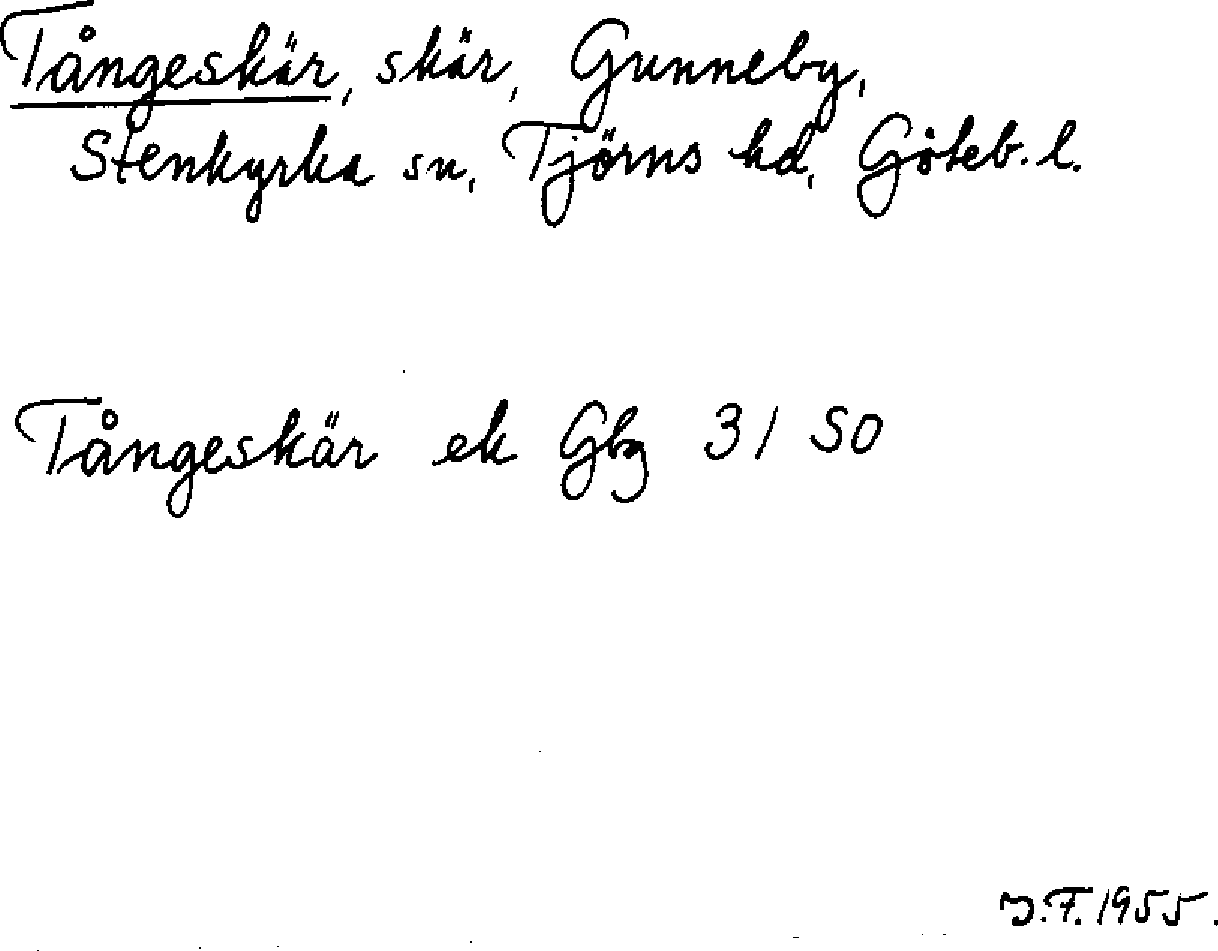 Tångeskär, skär, Gunneby,
Stenkyrka sn, Tjörns hd, Göteb. l.
Tångeskär ek Gbg 31 SO
J.F. 1955.